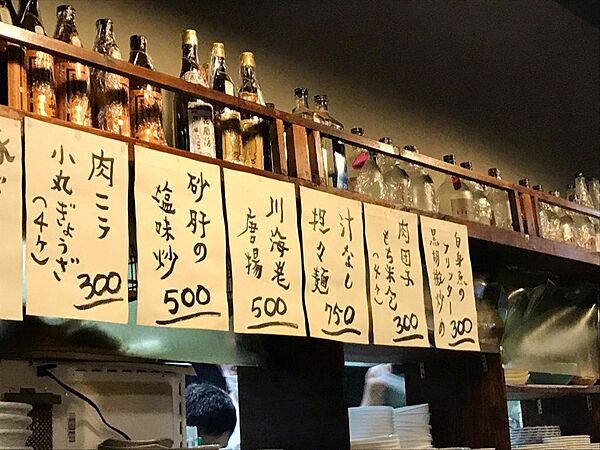 肉ニラ
小丸ぎょうざ
(4ケ)
300
砂肝の
塩味炒
500
川海老
唐揚
500
汁なし
担々麺
750
肉団子
もち米包
(4ケ)
300
白身魚の
フリッター
黒胡椒炒め
300